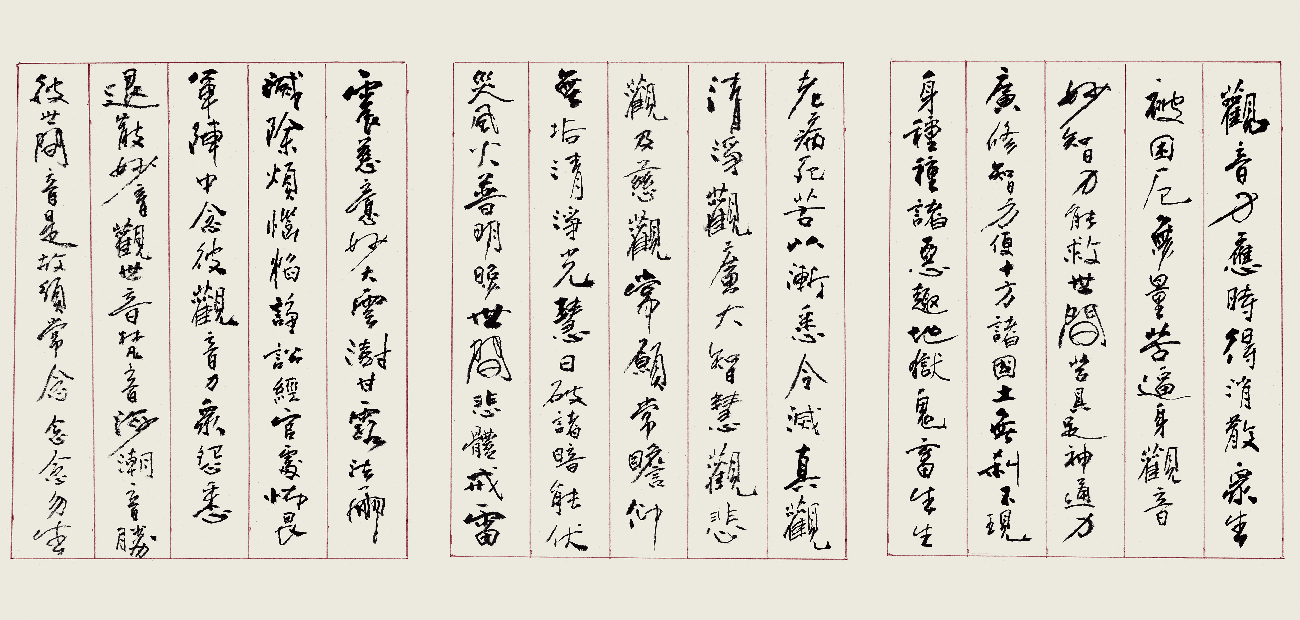 觀音力應時得消散衆生
被困厄無量苦逼身觀音
妙智力能救世間苦具足神通力
廣修智方便十方諸國土無刹不現
身種種諸惡趣地獄鬼畜生生
老病死苦以漸悉令滅真觀
清淨觀廣大智慧觀悲
觀及慈觀常願常瞻仰
無垢清淨光慧日破諸暗能伏
災風火普明照世間悲體戒雷
震慈意妙大雲澍甘露法雨
滅除煩惱焰諍訟經官處怖畏
軍陣中念彼觀音力衆怨悉
退散妙音觀世音梵音海潮音勝
彼世間音是故須常念念念勿生